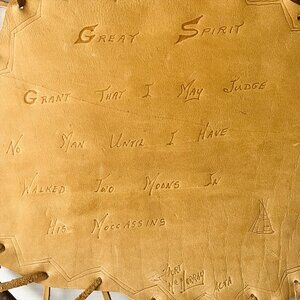 Great Spirit
Grant That I May Judge
No Man Until I Have
Walked Two Moons In
His Moccassins